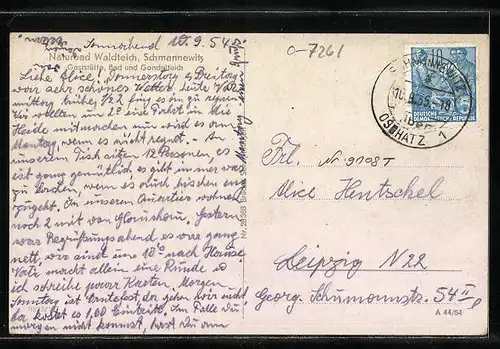 Sonnabend 10.9.54
Naturbad Waldteich, Schmannewitz
Gaststätte, Bad und Gondelteich
Liebe Alice! Donnerstag u. Freitag
war sehr schönes Wetter, heute Vor-
mittag trübe, 1/2 2 fing es an zu regnen.
Wir wollten um 2° eine Fahrt in die
Heide mitmachen nun wird es am
Montag, wenn es nicht regnet. - An
unserem Tisch sitzen 12 Personen, es
ist ganz gemütlich es gibt immer was
zu lachen, wenn es auch bischen eng
zugeht. In unseren Quartier wohnen
noch 2 mit von Glauchau. Gestern
war Begrüßungsabend es war ganz
nett, wir sind um 10° nach Hause
Vati macht allein eine Runde u.
ich schreibe paar Karten. Morgen
Sonntag ist Erntefest, da gehen wir nicht,
da kostet es 1,00 Eintritt. Im Falle Du
morgen nicht kommst, hast Du am
Montag
O-7261
SCHMANNEWITZ
ÜBER
OSCHATZ 1
10
DEUTSCHE
DEMOKRATISCHE REPUBLIK
Frl. Nr 9108 T
Alice Hentschel
Leipzig N 22
Georg. Schumannstr. 54 II
A 44/54